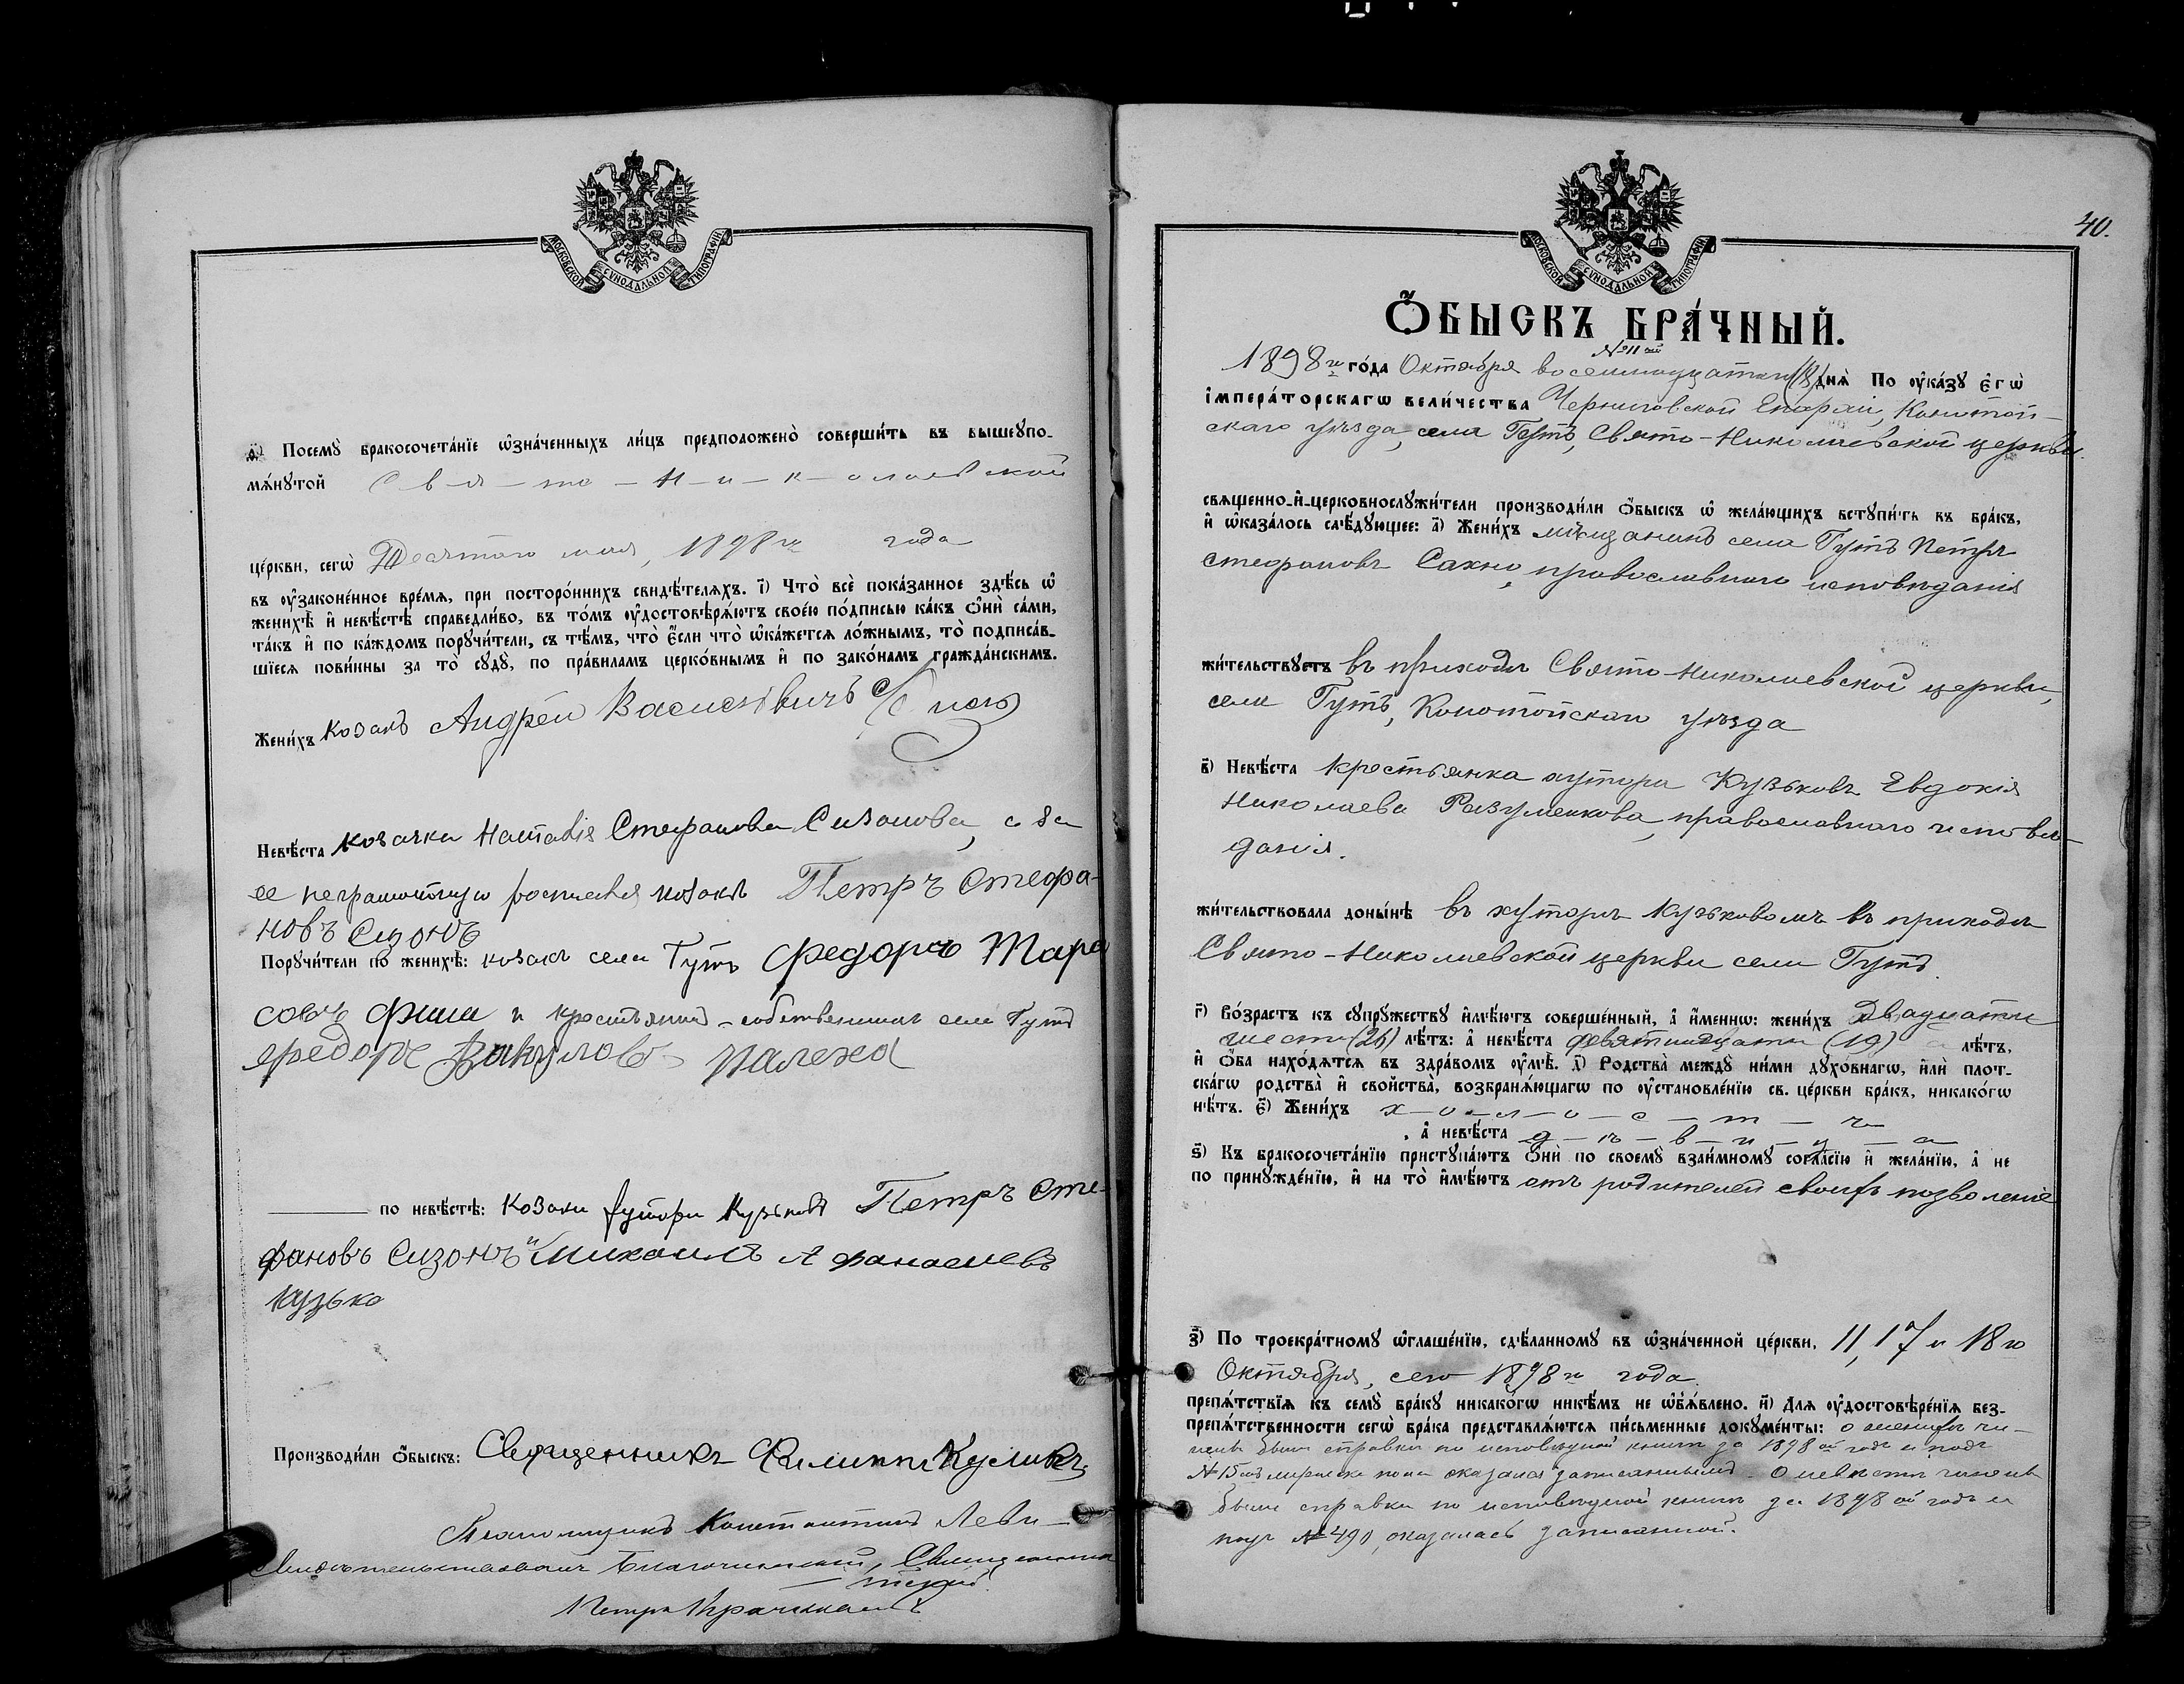 МОСКОВСКОЙ СѴНОДАЛЬНОЙ ТИПОГРАФІИ
д҃) Посемꙋ̀ бракосочета́нїе ѡ҆зна́ченныхъ ли́цъ предположено̀ соверши́ть въ вышеꙋпо-
мѧ́нꙋтой С-в-я-то-Н-и-к-олаевской
це́ркви, сегѡ̀ Десятого мая, 1898 го года
въ ᲂу҆зако́ненное вре́мѧ, при посторо́ннихъ свидѣ́телѧхъ. і҃) Что̀ всѐ пока́занное здѣ́сь ѡ҆
женихѣ̀ и҆ невѣ́стѣ справедли́во, въ то́мъ ᲂу҆достовѣрѧ́ютъ свое́ю по́дписью ка́къ ѻ҆нѝ са́ми,
та́къ и҆ по ка́ждомъ порꙋчи́тели, съ тѣ́мъ, что̀ є҆́сли что̀ ѡ҆ка́жетсѧ ло́жнымъ, то̀ подписа́в-
шїесѧ пови́нны за то̀ сꙋдꙋ̀, по пра́виламъ церко́внымъ и҆ по зако́намъ гражда́нскимъ.
Жени́хъ козакъ Андрей Васильевичъ
Невѣ́ста козачка Наталія Стефанова Сизонова, а за
ее неграмотную росписался козакъ Петръ Стефа-
новъ Сизонъ
Порꙋчи́тели по женихѣ̀: козакъ села Гутъ Федоръ Тара
совъ Фиша и крестьянинъ-собственникъ села Гутъ
Федоръ Вакуловъ Палеха
по невѣ́стѣ: козаки хутора Кузьковъ Петръ Сте-
фановъ Сизонъ и Михаилъ Афанасиевъ
Кузько
Производи́ли ѻ҆́быскъ: Священникъ Филиппъ Куликъ
Псаломщикъ Константинъ Леви-
Свидѣтельствовалъ Благочинный, Священникъ
Петръ
МОСКОВСКОЙ СѴНОДАЛЬНОЙ ТИПОГРАФІИ
40.
Ѻ҆́БЫСКЪ БРА́ЧНЫЙ.
№ 11 ый
1898 го го́да Октября восемнадцатаго (18) днѧ̀ По ᲂу҆ка́зꙋ є҆гѡ̀
і҆мпера́торскагѡ вели́чества Черниговской Епархіи, Конотоп-
скаго уѣзда, села Гутъ, Свято-Николаевской церкви.
свѧщенно-и҆-церковнослꙋжи́тели производи́ли ѻ҆́быскъ ѡ҆ жела́ющихъ встꙋпи́ть въ бра́къ,
и҆ ѡ҆каза́лось слѣ́дꙋющее: а҃) Жени́хъ мѣщанинъ села Гутъ Петръ
Стефановъ Сахно, православнаго исповѣданія
жи́тельствꙋетъ въ приходѣ Свято-Николаевской церкви,
села Гутъ, Конотопскаго уѣзда
в҃) Невѣ́ста крестьянка хутора Кузьковъ Евдокія
Николаева Разуменкова, православнаго исповѣ-
данія.
жи́тельствовала доны́нѣ въ хуторѣ Кузьковомъ въ приходѣ
Свято-Николаевской церкви села Гутъ.
г҃) Во́зрастъ къ сꙋпрꙋ́жествꙋ и҆мѣ́ютъ соверше́нный, а҆ и҆́меннѡ: жени́хъ двадцати
шести (26) лѣ́тъ: а҆ невѣ́ста девятнадцати (19) лѣ́тъ,
и҆ ѻ҆́ба нахо́дѧтсѧ въ здра́вомъ ᲂу҆мѣ̀. д҃) Родства̀ междꙋ̀ ни́ми дꙋхо́внагѡ, и҆лѝ плот-
ска́гѡ родства̀ и҆ свойства̀, возбранѧ́ющагѡ по ᲂу҆становле́нїю св. це́ркви бра́къ, никако́гѡ
нѣ́тъ. є҃) Жени́хъ х-о-л-о-с-т-ъ
, а҆ невѣ́ста д-ѣ-в-и-ц-а
ѕ҃) Къ бракосочета́нїю пристꙋпа́ютъ ѻ҆нѝ по своемꙋ̀ взаи́мномꙋ согла́сїю и҆ жела́нїю, а҆ не
по принꙋжде́нїю, и҆ на то̀ и҆мѣ́ютъ отъ родителей своихъ позволеніе
з҃) По троекра́тномꙋ ѡ҆глаше́нїю, сдѣ́ланномꙋ въ ѡ҆зна́ченной це́ркви, 11, 17 и 18 го
Октября, сего 1898 го года
препѧ́тствїѧ къ семꙋ̀ бра́кꙋ никако́гѡ никѣ́мъ не ѡ҆б̾ѧ́влено. и҃) Длѧ ᲂу҆достовѣре́нїѧ без-
препѧ́тственности сегѡ̀ бра́ка представлѧ́ютсѧ пи́сьменные докꙋме́нты: о женихѣ чи-
нены были справки по исповѣдной книгѣ за 1898 ой годъ и подъ
№ 15 оказался записаннымъ. О невѣстѣ чинены
были справки по исповѣдной книгѣ за 1898 ой годъ и
подъ № 490, оказалась записанной.